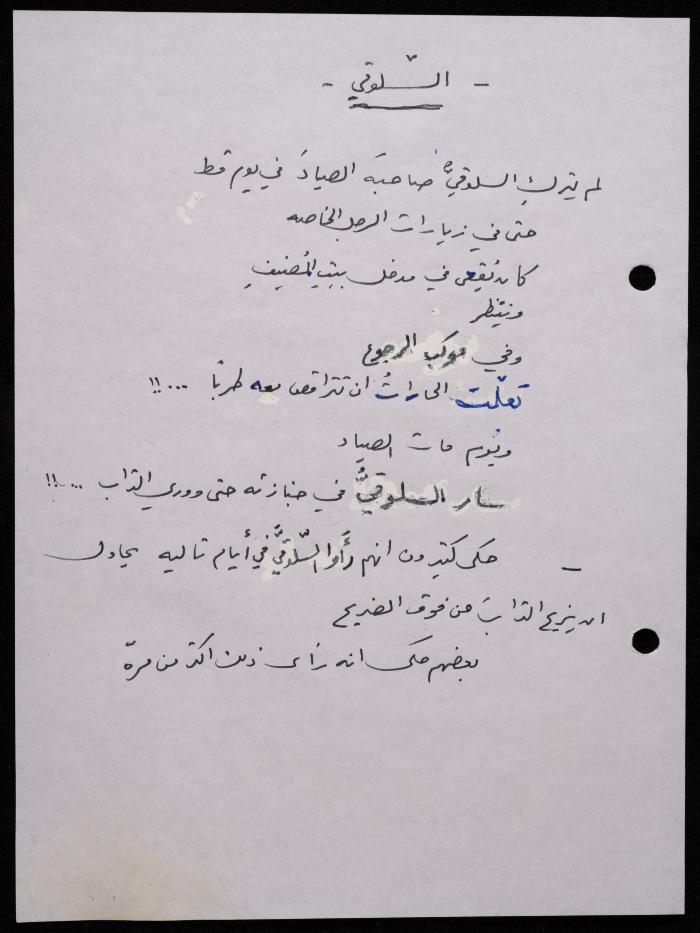 - السّلوقي -
لم يتركِ السلوقيُّ صاحبَه الصيادَ في يوم قط
حتى في زيارات الرجل الخاصه
كان يُقعي في مدخل بيتِ المُضيفِ
وينتظر
وفي موكب الرجوع
تعلّمت الحاراتُ ان تتراقص معه طربًا ... !!
ويوم مات الصياد
سار السلوقيُّ في جنازته حتى ووري التراب ... !!
_ حكى كثيرون انهم رأَوا السّلوقيَّ في أيام تاليه يحاول
ان يزيح الترابَ من فوق الضريح
بعضهم حكى انه رأى ذلك اكثر من مرّة